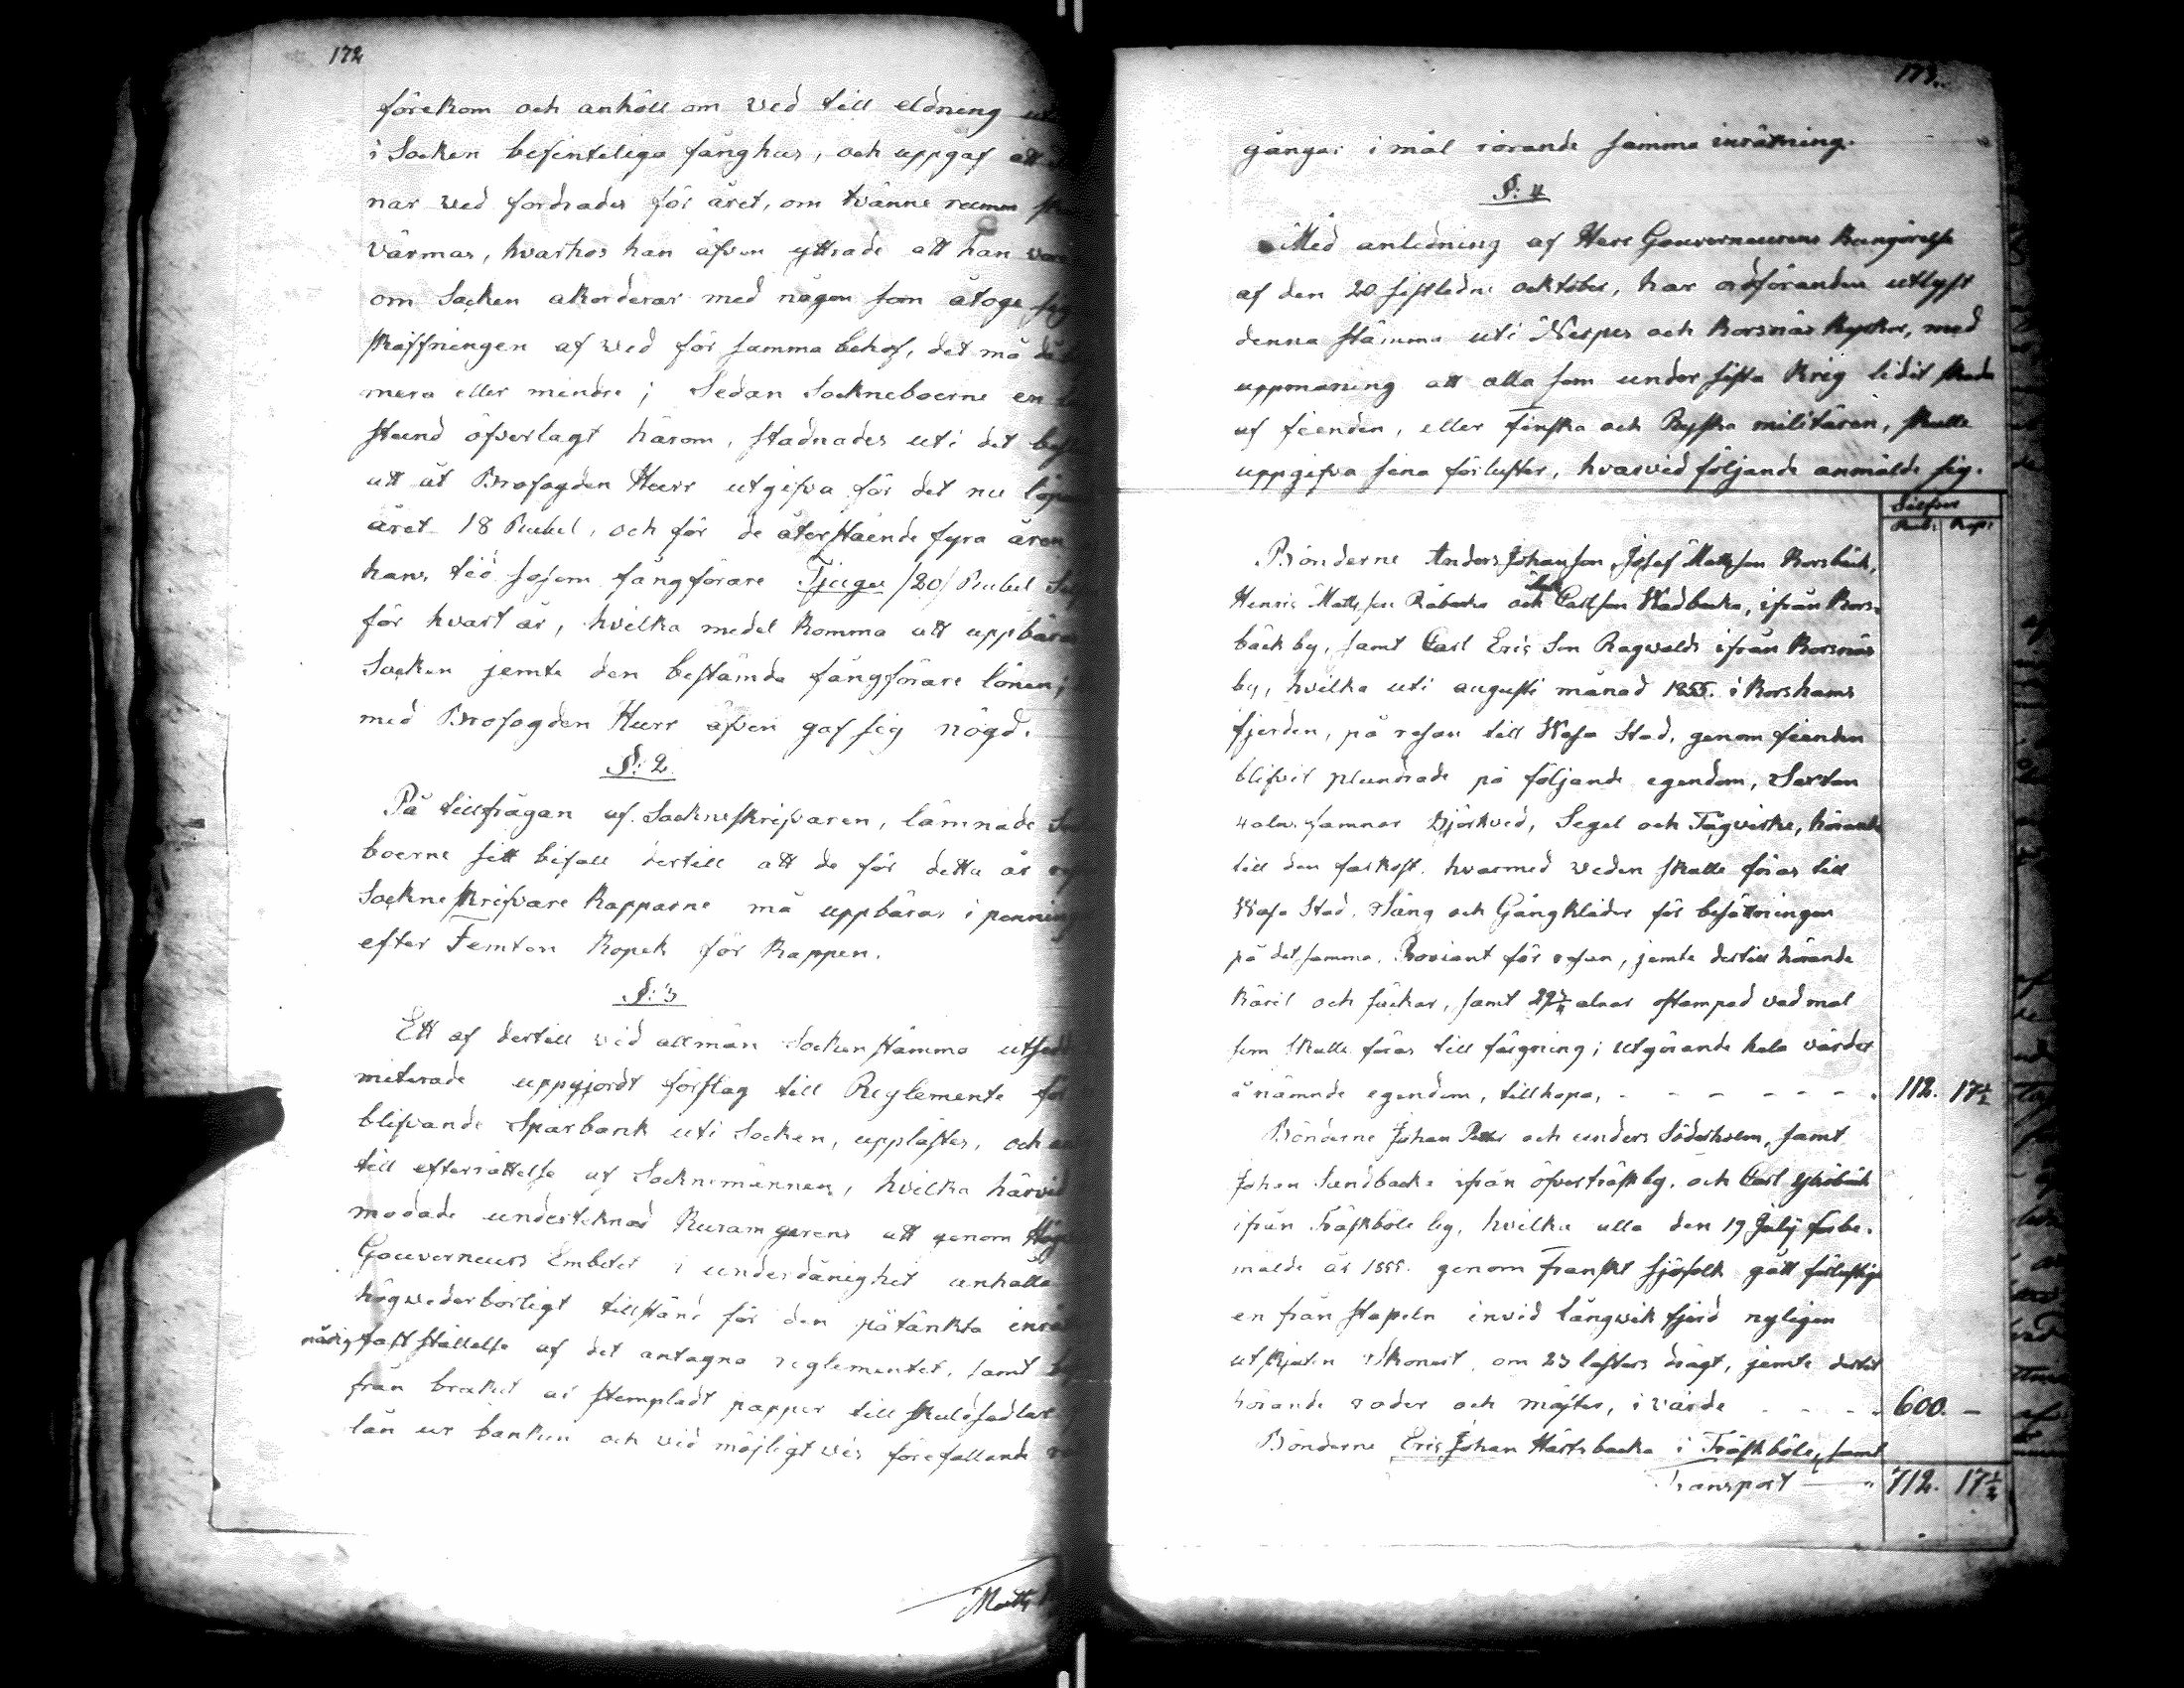 172
förekom och anhöll om ved till eldning
i Socken befinteliga fånghus, och uppgaf att
nar ved fordrades för året, om tvänne rumm
värmas, hvarhos han äfven yttrade att han
om Socken akorderar med någon som åtoge sig
skaffningen af ved för samma behof, det må
mera eller mindre; Sedan Sockneboerne en
stund öfverlagt härom, stadnades uti det
att åt Brofogden Hurr utgifva för det nu
året 18 Rubel, och för de återstående fyra åren
hans tid såsom fångförare Tjugu /20/ Rubel
för hvart år, hvilka medel komma att uppbäras
Socken jemte den bestämda fångförare lönen;
med Brofogden Hurr äfven gaf sig nögd.
§: 2.
På tillfrågan af Sockneskrifvaren, lämnade
boerne sitt bifall dertill att de för detta år
Sockneskrifvare kapparne må uppbäras i penning
efter Femton kopek för kappen.
§: 3
Ett af dertill vid allmän Sockenstämma
miterade uppgjordt förslag till Reglemente för
blifvande Sparbank uti Socken, upplästes, och
till efterrättelse af Socknemännen, hvilka härvid
modade undertecknad att genom
Gouverneurs Embetet i underdånighet anhålla
högvederbörligt tillstånd för den påtänkta
nådig fastställelse af det antagna reglementet, samt
från bruket af stempladt papper till skuldsedlar
lån ur banken och vid möjligtvis förefallande
Matts
173.
gångar i mål rörande samma inrättning.
§: 4
Med anledning af Herr Gouverneurens Kungörelse
af den 20 sistledne ocktober, har ordföranden utlyst
denna stämma uti Nerpes och Korsnäs kyrkor, med
uppmaning att alla som under sista krig lidit skada
af fienden, eller Finska och Ryska militären, skulle
uppgifva sina förluster, hvarvid följande anmälde sig.
Silfver
Rub: Kop:
Bönderne Anders Johansson, Josef Mattsson Korsbäck,
Henric Mattsson Råbacka och Carlsson Wadbacka, ifrån Kors-
bäck by, samt Carl Ericsson Ragwalds ifrån Korsnäs
by, hvilka uti augusti månad 1855. i Korshams
fjerden, på resan till Wasa Stad, genom fienden
blifvit plundrade på följande egendom, Sexton
4 aln. famnar Björkved, Segel och Tågvirke, hörande
till den farkost, hvarmed veden skulle föras till
Wasa Stad, Säng och Gångkläder för besättningen
på det samma, Proviant för resan, jemte dertill hörande
käril och säckar, samt alnar ostampad vadmal
som skulle föras till färgning; utgörande hela värdet
å nämnde egendom, tillhopa, - - - - - - 112. 17½
Bönderne Johan Petter och anders Söderholm, samt
Johan Sandbacka ifrån öfverträsk by, och Carl
ifrån Träskböle by, hvilka alla den 19 July förbe-
mälde år 1855. genom Franskt sjöfolk gått förlustige
en från stapeln invid långvik fjerd nyligen
utskjuten Skonert, om 23 lästers drägt, jemte dertill
hörande roder och master, i värde - - - - 600. -
Bönderne Eric Johan Härtsbacka i Träskböle, samt
Transport 712. 17½